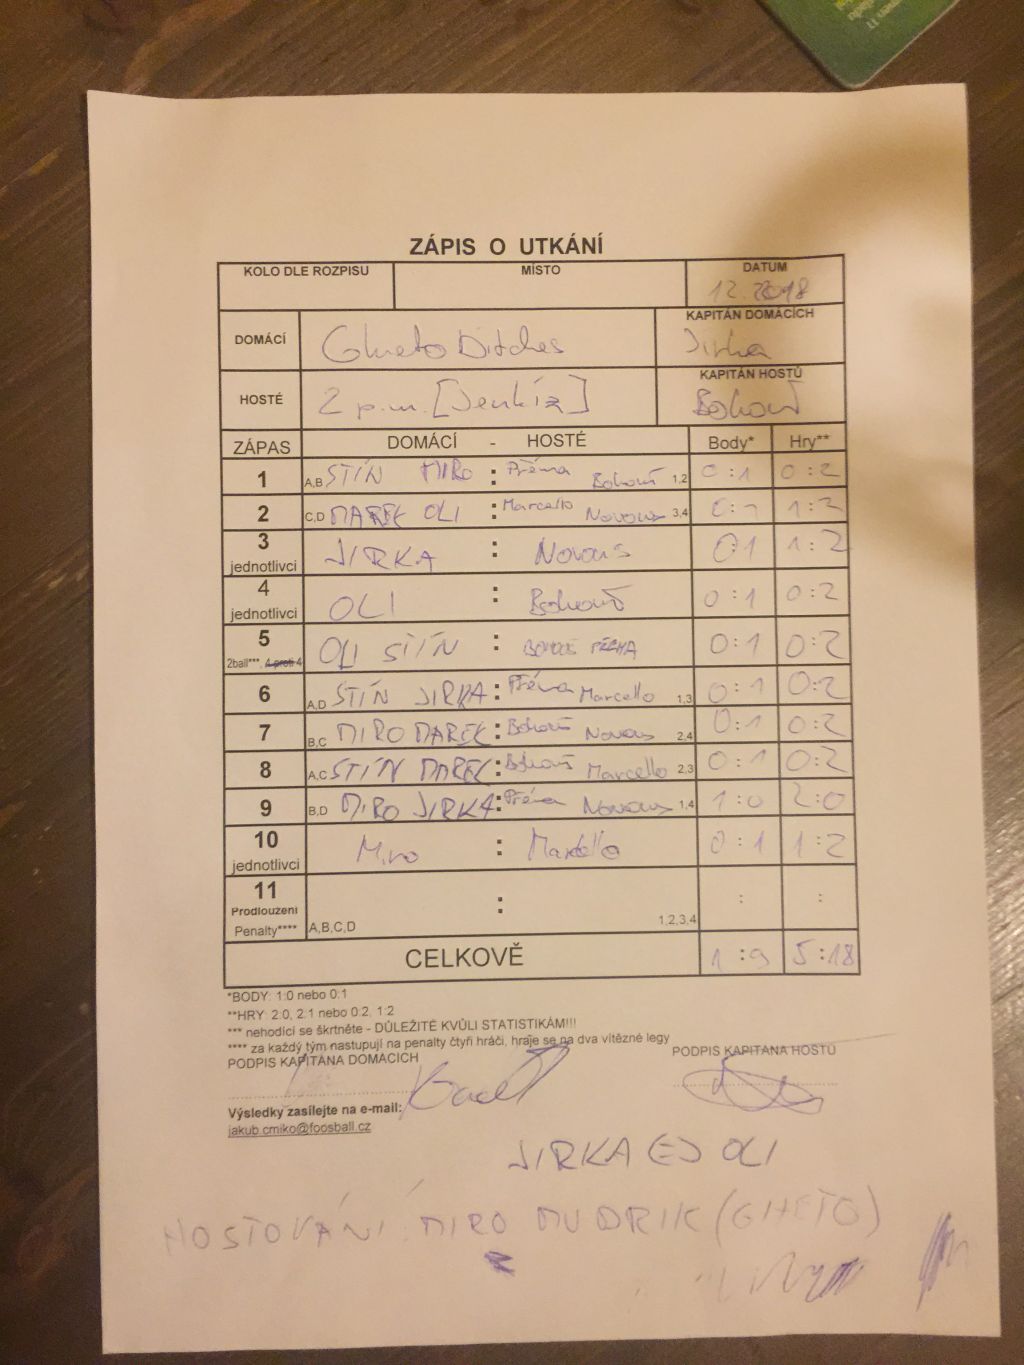 ZÁPIS O UTKÁNÍ
KOLO DLE ROZPISU MÍSTO DATUM
12. 2018
DOMÁCÍ Gheto Bitches KAPITÁN DOMÁCÍCH
Jirka
HOSTÉ 2 p.m. [Jenkíz] KAPITÁN HOSTŮ
Bohouš
ZÁPAS DOMÁCÍ - HOSTÉ Body* Hry**
1 A,B STÍN MIRO : Přéma Bohouš 1,2 0:1 0:2
2 C,D MAREK OLI : Marcello Novous 3,4 0:1 1:2
3 jednotlivci JIRKA : Novous 0:1 1:2
4 jednotlivci OLI : Bohouš 0:1 0:2
5 2ball***, 4 proti 4 OLI STÍN : BOHOUŠ PŘÉMA 0:1 0:2
6 A,D STÍN JIRKA : Přéma Marcello 1,3 0:1 0:2
7 B,C MIRO MAREK : Bohouš Novous 2,4 0:1 0:2
8 A,C STÍN MAREK : Bohouš Marcello 2,3 0:1 0:2
9 B,D MIRO JIRKA : Přéma Novous 1,4 1:0 2:0
10 jednotlivci Miro : Marcello 0:1 1:2
11 Prodloužení Penalty**** A,B,C,D : 1,2,3,4 : :
CELKOVĚ 1:9 5:18
*BODY: 1:0 nebo 0:1
**HRY: 2:0, 2:1 nebo 0:2, 1:2
*** nehodící se škrtněte - DŮLEŽITÉ KVŮLI STATISTIKÁM!!!
**** za každý tým nastupují na penalty čtyři hráči, hraje se na dva vítězné legy
PODPIS KAPITÁNA DOMÁCÍCH PODPIS KAPITANA HOSTŮ
Výsledky zasílejte na e-mail:
jakub.cmiko@foosball.cz
JIRKA (=) OLI
HOSTOVÁNÍ: MIRO MUDRIK (GHETO)